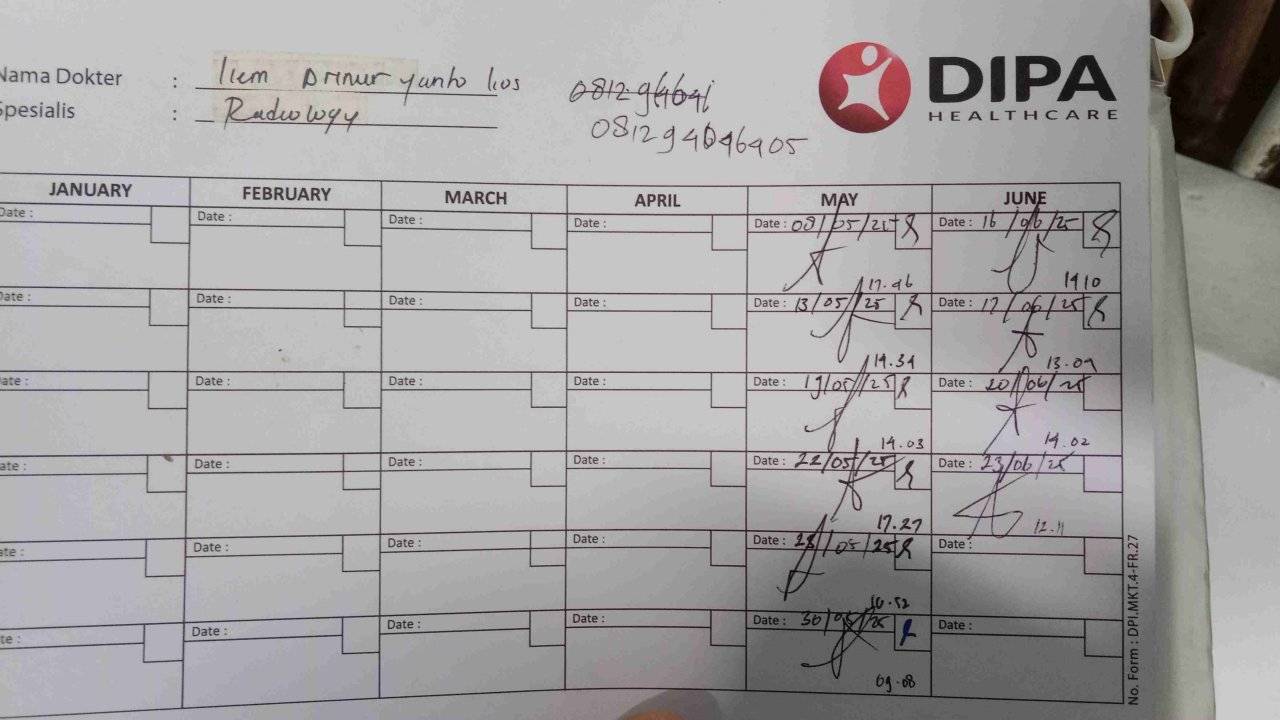 Nama Dokter :
Spesialis : Radiology
081294646405
DIPA
HEALTHCARE
JANUARY FEBRUARY MARCH APRIL MAY JUNE
Date : Date : Date : Date : Date : 08/05/25 Date : 16/06/25
17.46 1410
Date : Date : Date : Date : Date : 13/05/25 Date : 17/06/25
14.34 13.04
Date : Date : Date : Date : Date : 19/05/25 Date : 20/06/25
14.03 14.02
Date : Date : Date : Date : Date : 22/05/25 Date : 23/06/25
17.27 12.11
Date : Date : Date : Date : Date : 28/05/25 Date :
16.52
Date : Date : Date : Date : Date : 30/05/25 Date :
09.08
No. Form : DPI.MKT.4-FR.27